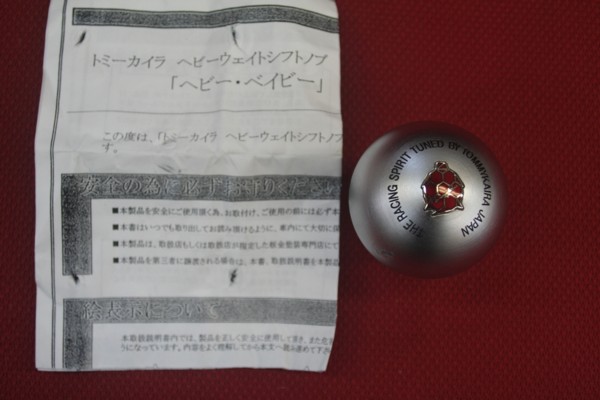 トミーカイラ ヘビーウェイトシフトノブ
「ヘビー・ベイビー」
この度は、「トミーカイラ ヘビーウェイトシフトノブ
す。
安全の為に必ずお守りください
■本製品を安全にご使用頂く為、お取付け、ご使用の際には必ず本
■本書はいつでも取り出してお読み頂けるように、車内にて大切に保
■本製品は、取扱店もしくは取扱店が指定した
■本製品を第三者に譲渡される場合は、本書、取扱説明書を本製品
絵表示について
本取扱説明書内では、製品を正しく安全に使用して頂き、また
うになっています。内容をよく理解してから本文へ
THE RACING SPIRIT TUNED BY TOMMYKAIRA JAPAN